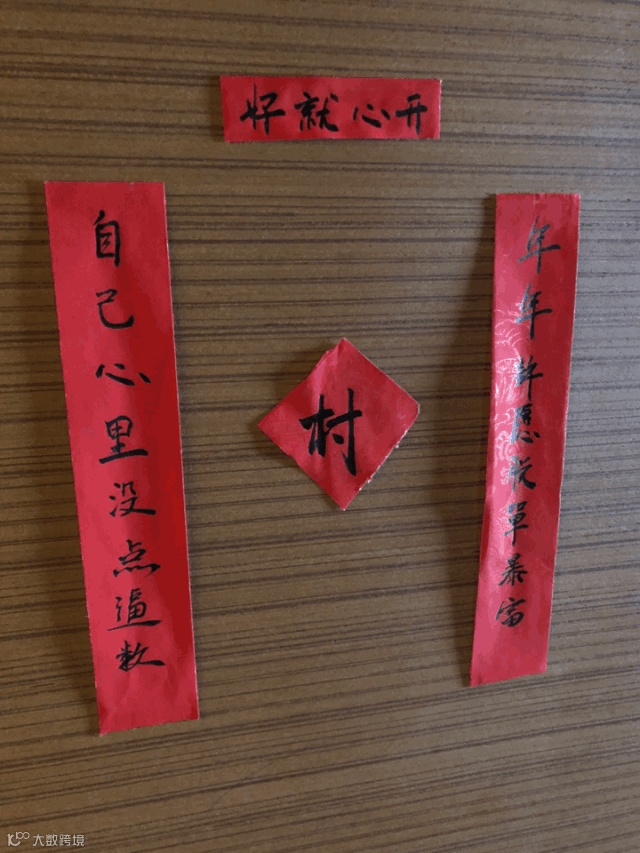 好就心开
年年许愿脱單暴富
自己心里没点逼数
村
大数跨境